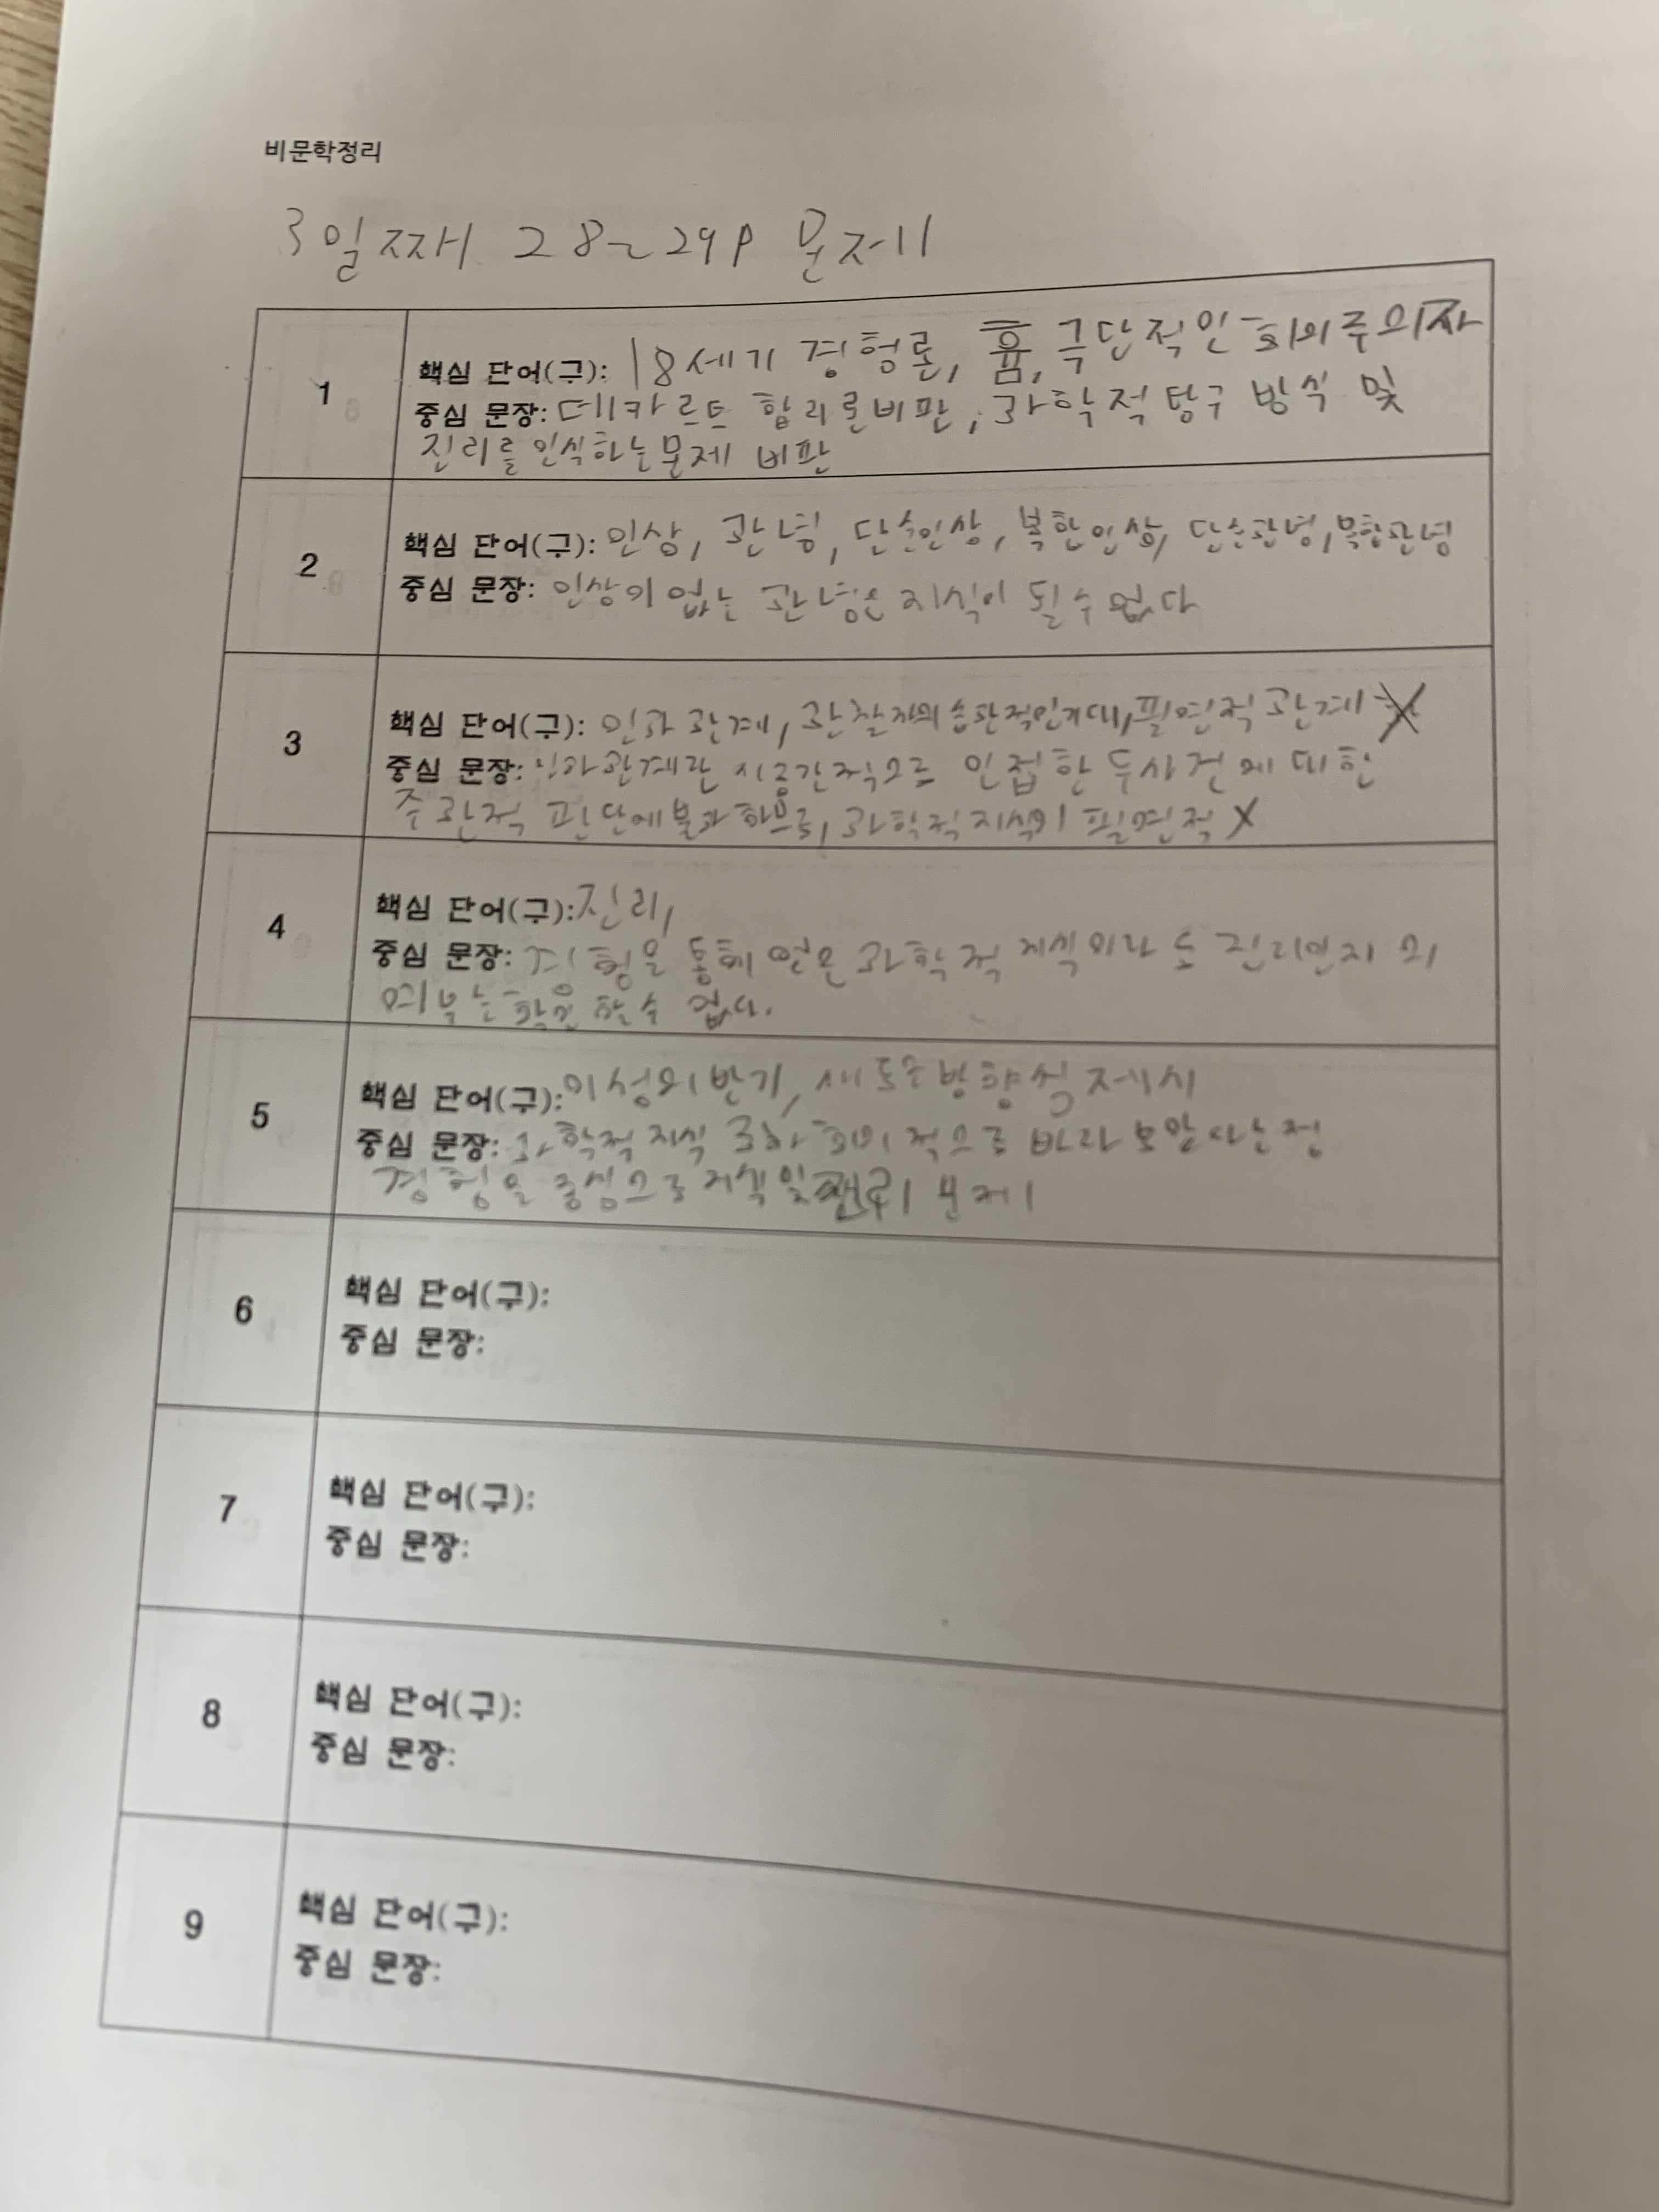 비문학정리
3일째 28~29p 문제
1
핵심 단어(구): 18세기 경험론, 흄, 극단적인 회의주의자
중심 문장: 데카르트 합리론비판, 과학적탐구 방식 및
진리를 인식하는문제 비판
2
핵심 단어(구): 인상, 관념, 단순인상, 복합인상, 단순관념, 복합관념
중심 문장: 인상이 없는 관념은 지식이 될수 없다
3
핵심 단어(구): 인과 관계, 관찰자의 습관적인기대, 필연적 관계 X
중심 문장: 인과관계란 시공간적으로 인접한 두사건에 대한
주관적 판단에불과하므로, 과학적지식이 필연적 X
4
핵심 단어(구): 진리,
중심 문장: 경험을 통해 얻은 과학적 지식이라도 진리인지의
여부는 확인할 수 없다.
5
핵심 단어(구): 이성의 반기, 새로운방향성 제시
중심 문장: 과학적 지식 회의적으로 바라보았다는점
경험을 중심으로 지식 및 진리 문제
6
핵심 단어(구):
중심 문장:
7
핵심 단어(구):
중심 문장:
8
핵심 단어(구):
중심 문장:
9
핵심 단어(구):
중심 문장: